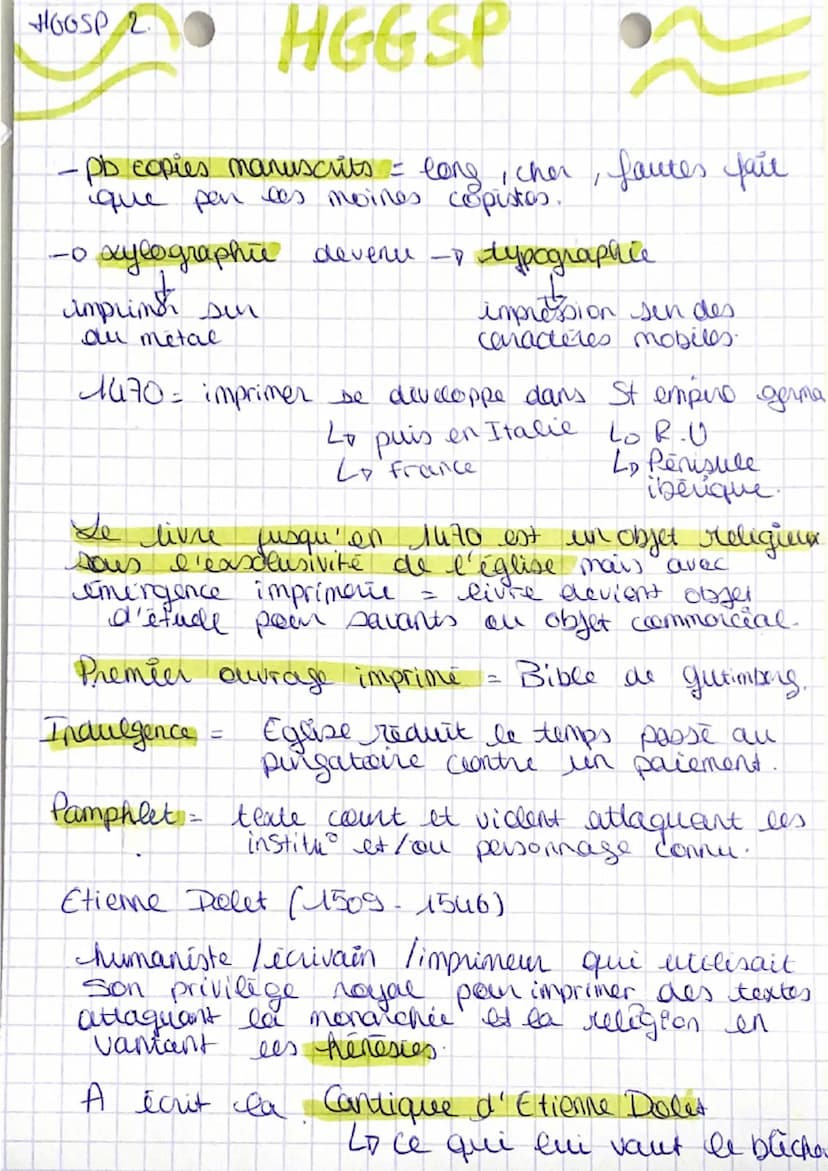 HGGSP 2.
HGGSP
- pb copies manuscrits = long, cher, fautes fait
que par les moines copistes.
-o xylographie devenu -> typographie
↓ ↓
imprimer sur impression sur des
du métal caractères mobiles.
1470 = imprimer se développe dans St empire germa
↳ puis en Italie ↳ R.U
↳ France ↳ Pénisule
ibérique.
Le livre jusqu'en 1470 est un objet religieux
sous l'exclusivité de l'église mais avec
émergence imprimerie = livre devient objet
d'étude pour savants ou objet commercial.
Premier ouvrage imprimé = Bible de gutimberg.
Indulgence = Eglise réduit le temps passé au
purgatoire contre un paiement.
Pamphlet = texte court et violent attaquant les
institu° et/ou personnage connu.
Etienne Dolet (1509 - 1546)
humaniste /écrivain /imprimeur qui utilisait
son privilège royal pour imprimer des textes
attaquant la monarchie et la religion en
vantant les hérésies.
A écrit la Cantique d'Etienne Dolet
↳ ce qui lui vaut le bûche